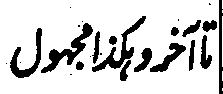 تا آخر و ہکذا مجہول